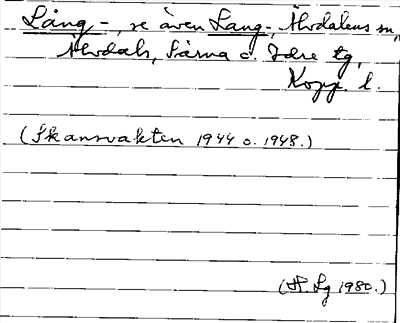 Lång-, se även Lang-, Älvdalens sn,
Älvdals, Särna o. Idre tg,
Kopp. l.
(Skansvakten 1944 o. 1948.)
(H. Lg 1980.)